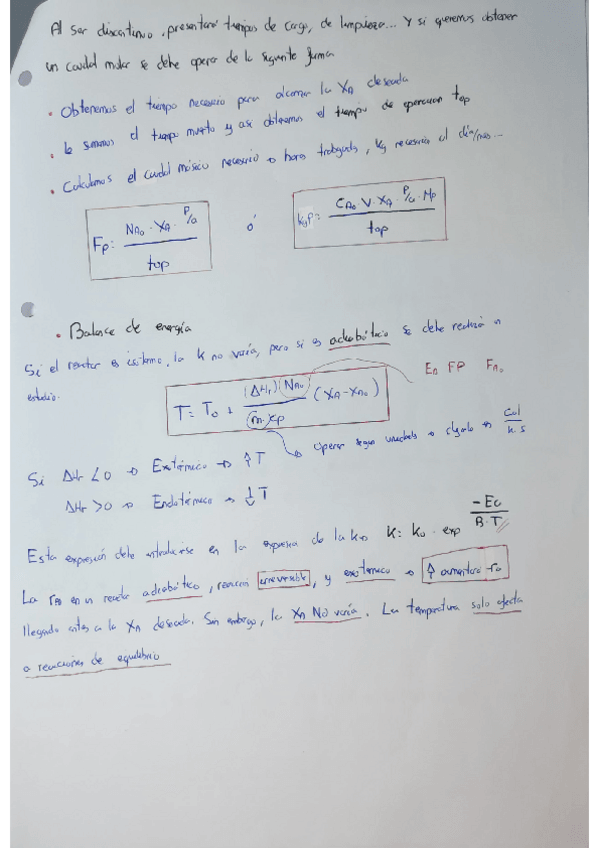 Al ser discontinuo, presentará tiempos de carga, de limpieza... Y si queremos obtener
un caudal molar se debe operar de la siguiente forma
• Obtenemos el tiempo necesario para alcanzar la XA deseada
• le sumamos el tiempo muerto y así obtenemos el tiempo de operacion top
• Calculamos el caudal másico necesario o horas trabajadas, kg necesarios al día/mes...
Fp: NA0 · XA · P/a / top ó kgP: CA0 V · XA · P/a · Mp / top
• Balance de energía
Si el reactor es isotermo, la k no varía, pero si es adiabático se debe realizar un
estudio.
T = T0 + (ΔHr)(NA0) / (m·cp) (XA - XA0) En FP FA0
Operar segun unidades cal / K·s
Si ΔHr < 0 → Exotérmico → ↑ T
ΔHr > 0 → Endotérmico → ↓ T
Esta expresión debe introducirse en la expresion de la k → K: K0 · exp -Ea / R·T
La en un reactor adiabático, reaccion irreversible, y exotermica → ↑ aumentará
llegando antes a la XA deseada. Sin embargo, la XA No varía. La temperatura solo afecta
a reacciones de equilibrio